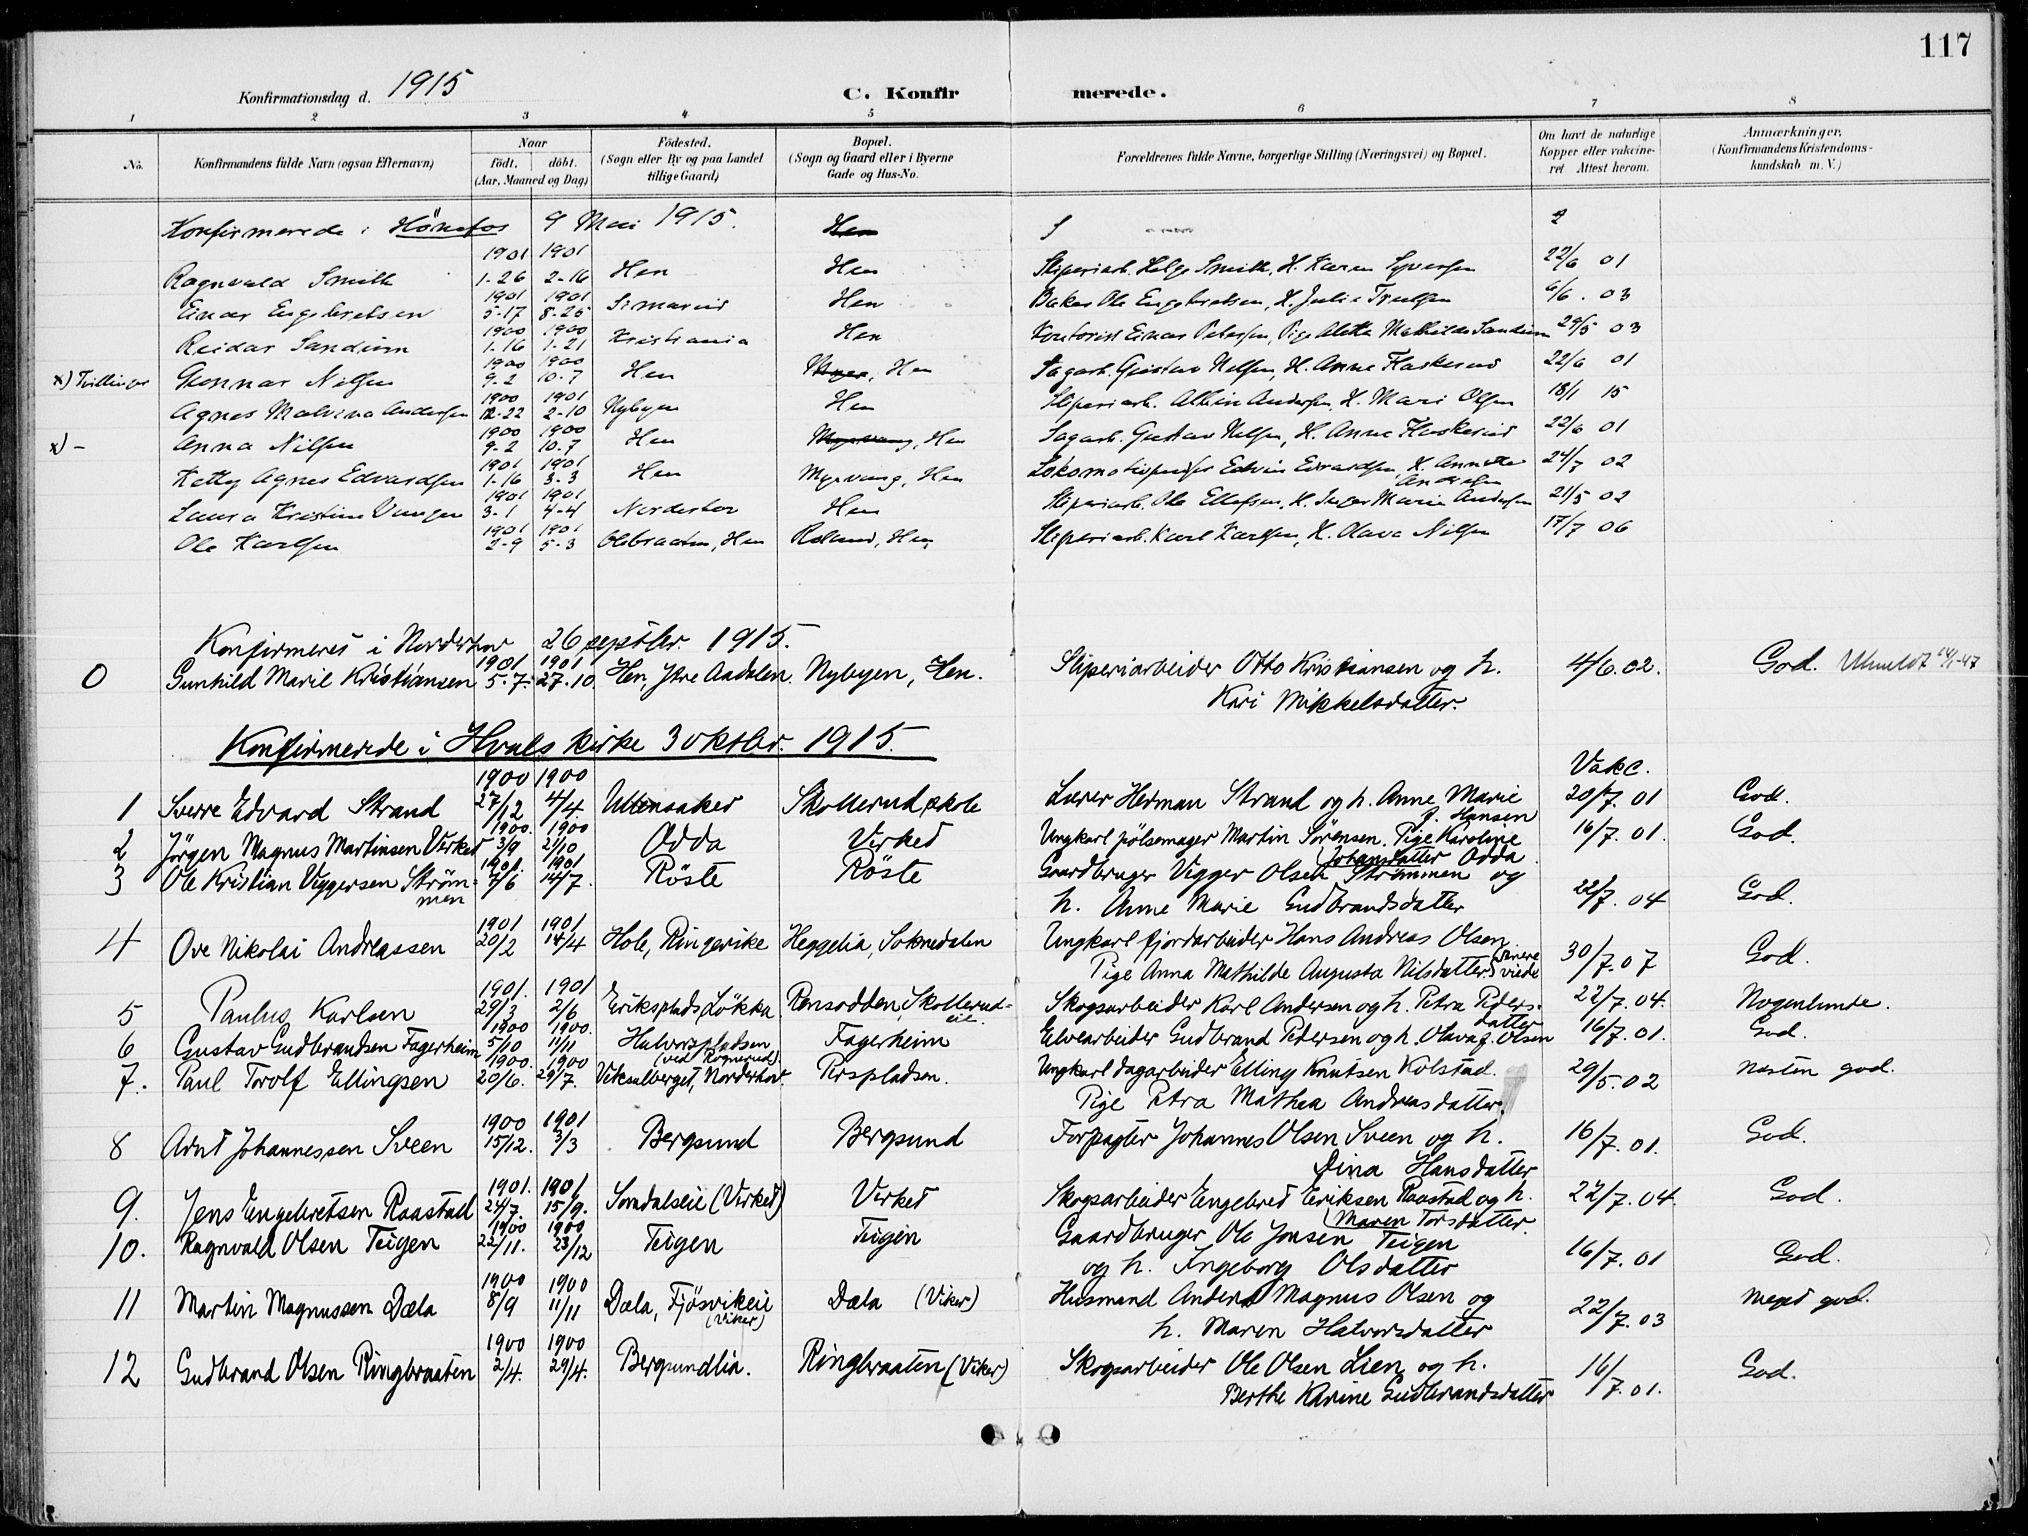 117
Konfirmationsdag d. 1915
C. Konfirmerede.
1 2 3 4 5 6 7 8
No. Konfirmandens fulde Navn (ogsaa Efternavn) Naar født. døbt. (Aar, Maaned og Dag) Födested. (Sogn eller By og paa Landet tillige Gaard) Bopæl. (Sogn og Gaard eller i Byerne Gade og Hus-No. Forældrenes fulde Navne, borgerlige Stilling (Næringsvei) og Bopæl. Om havt de naturlige Kopper eller vakcineret Attest herom. Anmærkninger. (Konfirmandens Kristendomskundskab m. V.)
Konfirmerede i Hönefos 9 Mai 1915. Hen
1901 1901
Ragnvald Smith 1-26 2-16 Hen Hen Sliperiarb. Helge Smith, H. Karen Syversen 22/6 01
1901 1901
Einar Engebretsen 5-17 8-25 Hen Baker Ole Engebretsen, H. Julie Trulsen 6/6. 03
1900 1900
Reidar Sandum 1-16 1-21 Kristiania Hen Kontorist Einar Petersen, Pige Aletta Mathilde Sandum 29/5 03
1900 1900
x) Tvillinger Gunnar Nilsen 9-2 10-7 Hen Hen Sagarb. Gustav Nilsen, H. Anne Flaskerud 22/6 01
1900 1901
Agnes Malvina Andersen 12-22 2-10 Nybyen Hen Sliperiarb. Albin Andersen, H. Mari Olsen 18/1 15
1900 1900
x) - Anna Nilsen 9-2 10-7 Hen Myrvang, Hen Sagarb. Gustav Nilsen, H. Anne Flaskerud 22/6 01
1901 1901
Ketty Agnes Edvardsen 1-16 3-3 Hen Myrvang, Hen Edvin Edvardsen, H. Annette Andersen 24/7 02
1901 1901
Laura Kristine 3-1 4-4 Norderhov Hen Sliperiarb. Ole Ellefsen, H. Inger Marie Andersen 21/5 02
1901 1901
Ole Karlsen 2-9 5-3 Olebraaten, Hen Roland, Hen Sliperiarb. Karl Karlsen, H. Olava Nilsen 17/7 06
Konfirmeret i Norderhov 26 septbr. 1915.
1901 1901
0 Gunhild Marie Kristiansen 5-7- 27-10 Hen, Ytre Aadalen. Nybyen, Hen. Sliperiarbeider Otto Kristiansen og h. 4/6.02. God. Utmeldt
Kari Mikkelsdatter.
Konfirmerede i Hvals kirke 3 oktbr. 1915.
1900 1900 Vakc.
1 Sverre Edvard Strand 27/12 4/4. Ullensaker Skollerud skole Lærer Herman Strand og h. Anne Marie 20/7. 01 God.
f. Hansen
1900. 1900
2 Jörgen Magnus Martinsen Virket 3/9 21/10 Odda Virket Ungkarl pölsemager Martin Sörensen. Pige Karoline 16/7. 01. God.
Johansdatter Odda
1901. 1901
3 Ole Kristian Viggersen Strömmen 9/6 14/7. Röste Röste Gaardbruger Vigger Olsen Strömmen og
h. Anne Marie Gudbrandsdatter 22/7. 04 God.
1901 1901
4 Ove Nikolai Andreassen 20/2 14/4 Hole, Ringerike Heggelia, Soknedalen Ungkarl fjordarbeider Hans Andreas Olsen.
Pige Anna Mathilde Augusta Nilsdatter (senere viede 30/7.07 God.
1901. 1901
5 Paulus Karlsen 29/3 2/6 Eriksplads Lökka Rensodden, Skollerudeie. Skogsarbeider Karl Andersen og h. Petra Pedersdatter 22/7.04. Nogenlunde.
1900 1900.
6 Gustav Gudbrandsen Fagerheim 5/10 11/11 Halvorspladsen (ved Rognerud) Fagerheim Elvearbeider Gudbrand Pedersen og h. Olava f. Olsen 16/7.01. God.
1900. 1900
7. Paul Torolf Ellingsen 20/6. 29/7. Viksalberget, Norderhov. Perspladsen. Ungkarl dagarbeider Elling Knutsen Kolstad. 29/5.02 næsten god.
Pige Petra Mathea Andreasdatter.
1900 1901
8 Arnt Johannessen Sveen 15/12. 3/3 Bergsund Bergsund Forpagter Johannes Olsen Sveen og h. 16/7.01. God.
Dina Hansdatter
1901. 1901
9. Jens Engebretsen Raastad 24/7. 15/9. Somdalseie (Virket) Virket Skogsarbeider Engebret Eriksen Raastad og h. 22/7.04. God.
Maren Torsdatter
1900 1900
10. Ragnvald Olsen Teigen 22/11. 23/12 Teigen Teigen Gaardbruger Ole Jonsen Teigen
og h. Ingeborg Olsdatter 16/7.01 God.
1900 1900
11 Martin Magnussen Dæla 8/9 11/11 Dæla, Fjösvikeie (Viker) Dæla (Viker) Husmand Anders Magnus Olsen og meget god.
h. Maren Halvorsdatter 22/7.03
1900 1900
12 Gudbrand Olsen Ringbraaten 2/4. 29/4. Bergsundlia. Ringbraaten (Viker) Skogsarbeider Ole Olsen Lien og h. 16/7.01. God.
Berthe Karine Gudbrandsdatter